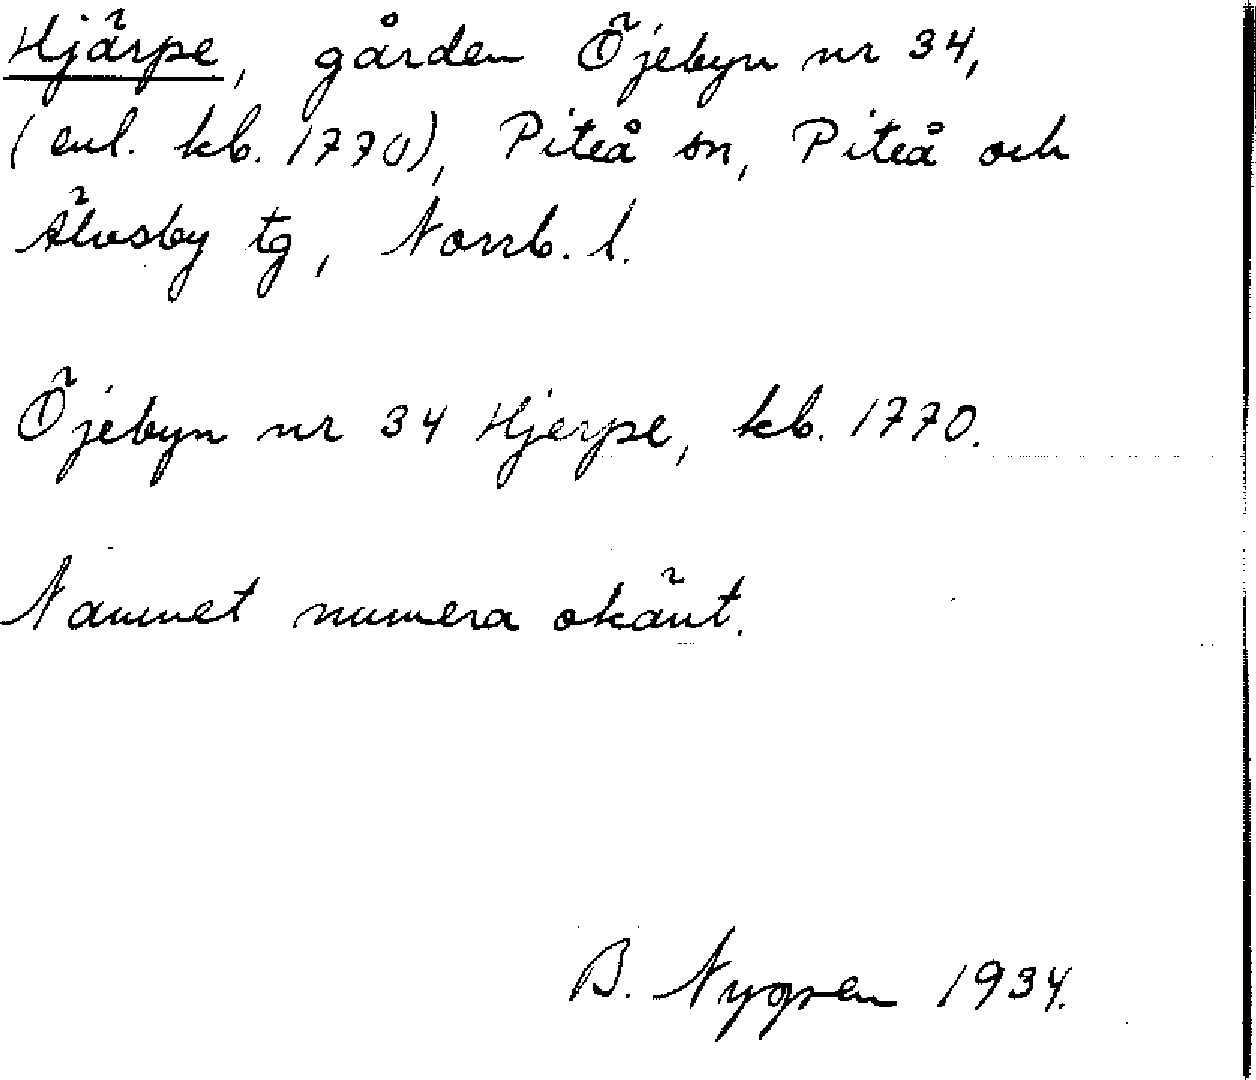 Hjärpe, gården Öjebyn nr 34,
(enl. kb. 1770), Piteå sn, Piteå och
Älvsby tg, Norrb. l.
Öjebyn nr 34 Hjerpe, kb. 1770.
Namnet numera okänt.
B. Nygren 1934.